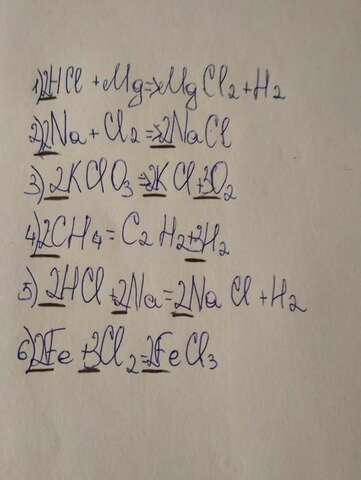 1) 2HCl + Mg => MgCl2 + H2
2) 2Na + Cl2 => 2NaCl
3) 2KClO3 => 2KCl + 3O2
4) 2CH4 = C2H2 + 3H2
5) 2HCl + 2Na = 2NaCl + H2
6) 2Fe + 3Cl2 = 2FeCl3